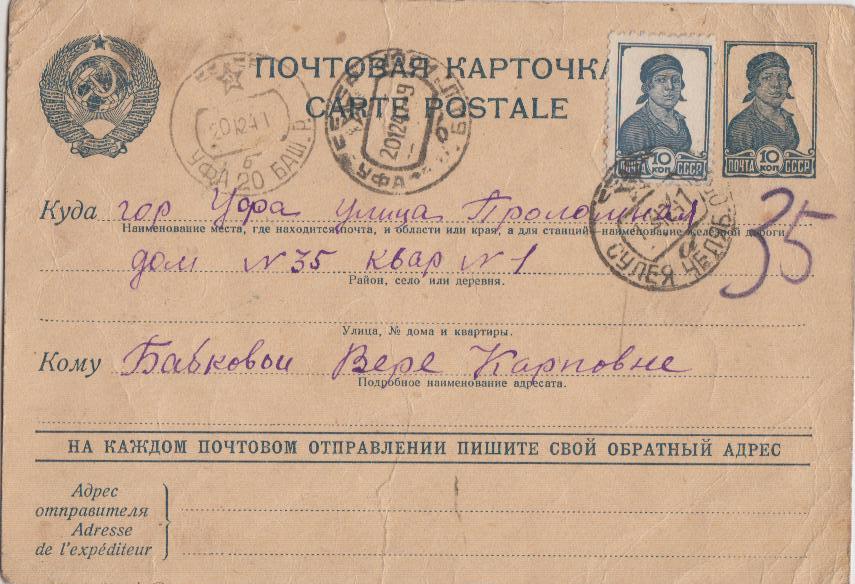 ПОЧТОВАЯ КАРТОЧКА
CARTE POSTALE
ПОЧТА 10 КОП СССР
ПОЧТА 10 КОП СССР
УФА 20 БАШ. Р.
УФА
СУЛЕЯ ЧЕЛЯБ.
35
Куда гор Уфа улица Проломная
Наименование места, где находится почта, и области или края, а для станций наименование железной дороги
дом N 35 квар N 1
Район, село или деревня.
Улица, № дома и квартиры.
Кому Бабковои Вере Карповне
Подробное наименование адресата.
НА КАЖДОМ ПОЧТОВОМ ОТПРАВЛЕНИИ ПИШИТЕ СВОЙ ОБРАТНЫЙ АДРЕС
Адрес
отправителя
Adresse
de l'expéditeur